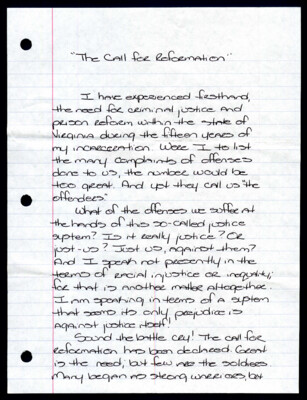 "The Call for Reformation"
I have experienced firsthand,
the need for criminal justice and
prison reform within the state of
Virginia during the fifteen years of
my incarceration. Were I to list
the many complaints of offenses
done to us, the number would be
too great. And yet they call us "the
offenders."
What of the offenses we suffer at
the hands of this so-called justice
system? Is it really justice? Or
just-us? Just us, against them?
And I speak not presently in the
terms of racial injustice or inequity,
for that is another matter altogether.
I am speaking in terms of a system
that seems its only prejudice is
against justice itself!
Sound the battle cry! The call for
reformation has been declared. Great
is the need, but few are the soldiers.
Many began as strong warriors, but